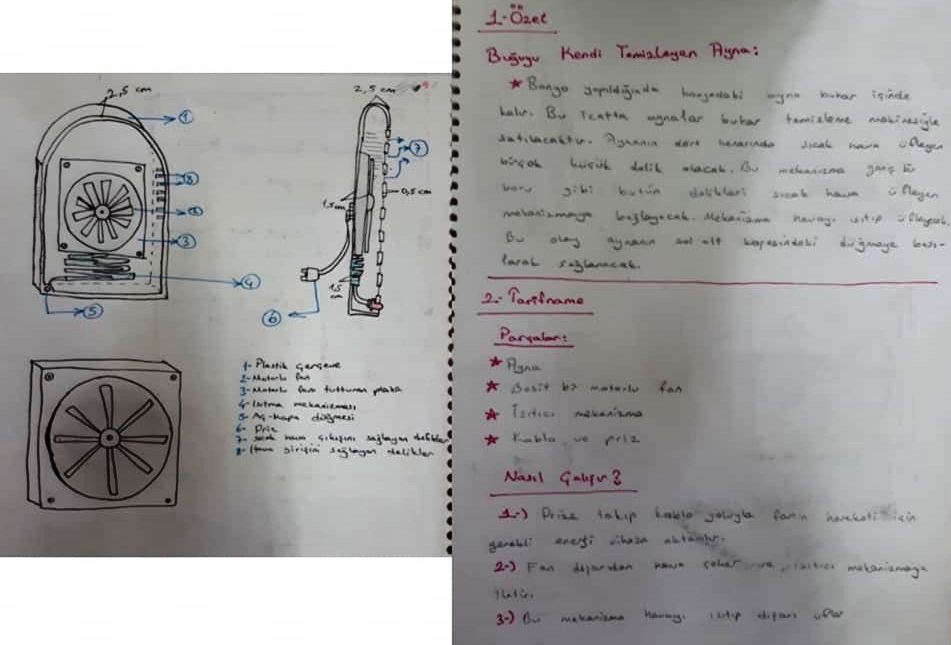 2,5 cm
1
8
2
3
4
5
2,5 cm
7
0,5 cm
1,5 cm
1,5 cm
6
1- Plastik çerçeve
2- Motorlu fan
3- Motorlu fanı tutturan plaka
4- Isıtma mekanizması
5- Aç-kapa düğmesi
6- Priz
7- Sıcak hava çıkışını sağlayan delikler
8- Hava girişini sağlayan delikler
1-Özet
Buğuyu Kendi Temizleyen Ayna:
★ Banyo yapıldığında banyodaki ayna buhar içinde
kalır. Bu icatta aynalar buhar temizleme makinesiyle
satılacaktır. Aynanın dört kenarında sıcak hava üfleyen
birçok küçük delik olacak. Bu mekanizma geniş bir
boru gibi bütün delikleri sıcak hava üfleyen
mekanizmaya bağlayacak. Mekanizma havayı ısıtıp üfleyecek.
Bu olay aynanın sol alt köşesindeki düğmeye bası-
larak sağlanacak.
2- Tarifname
Parçalar:
★ Ayna
★ Basit bir motorlu fan
★ Isıtıcı mekanizma
★ Kablo ve priz
Nasıl Çalışır?
1-) Prize takıp kablo yoluyla fanın hareketi için
gerekli enerji cihaza aktarılır.
2-) Fan dışarıdan hava çeker ve ısıtıcı mekanizmaya
iletir.
3-) Bu mekanizma havayı ısıtıp dışarı üfler